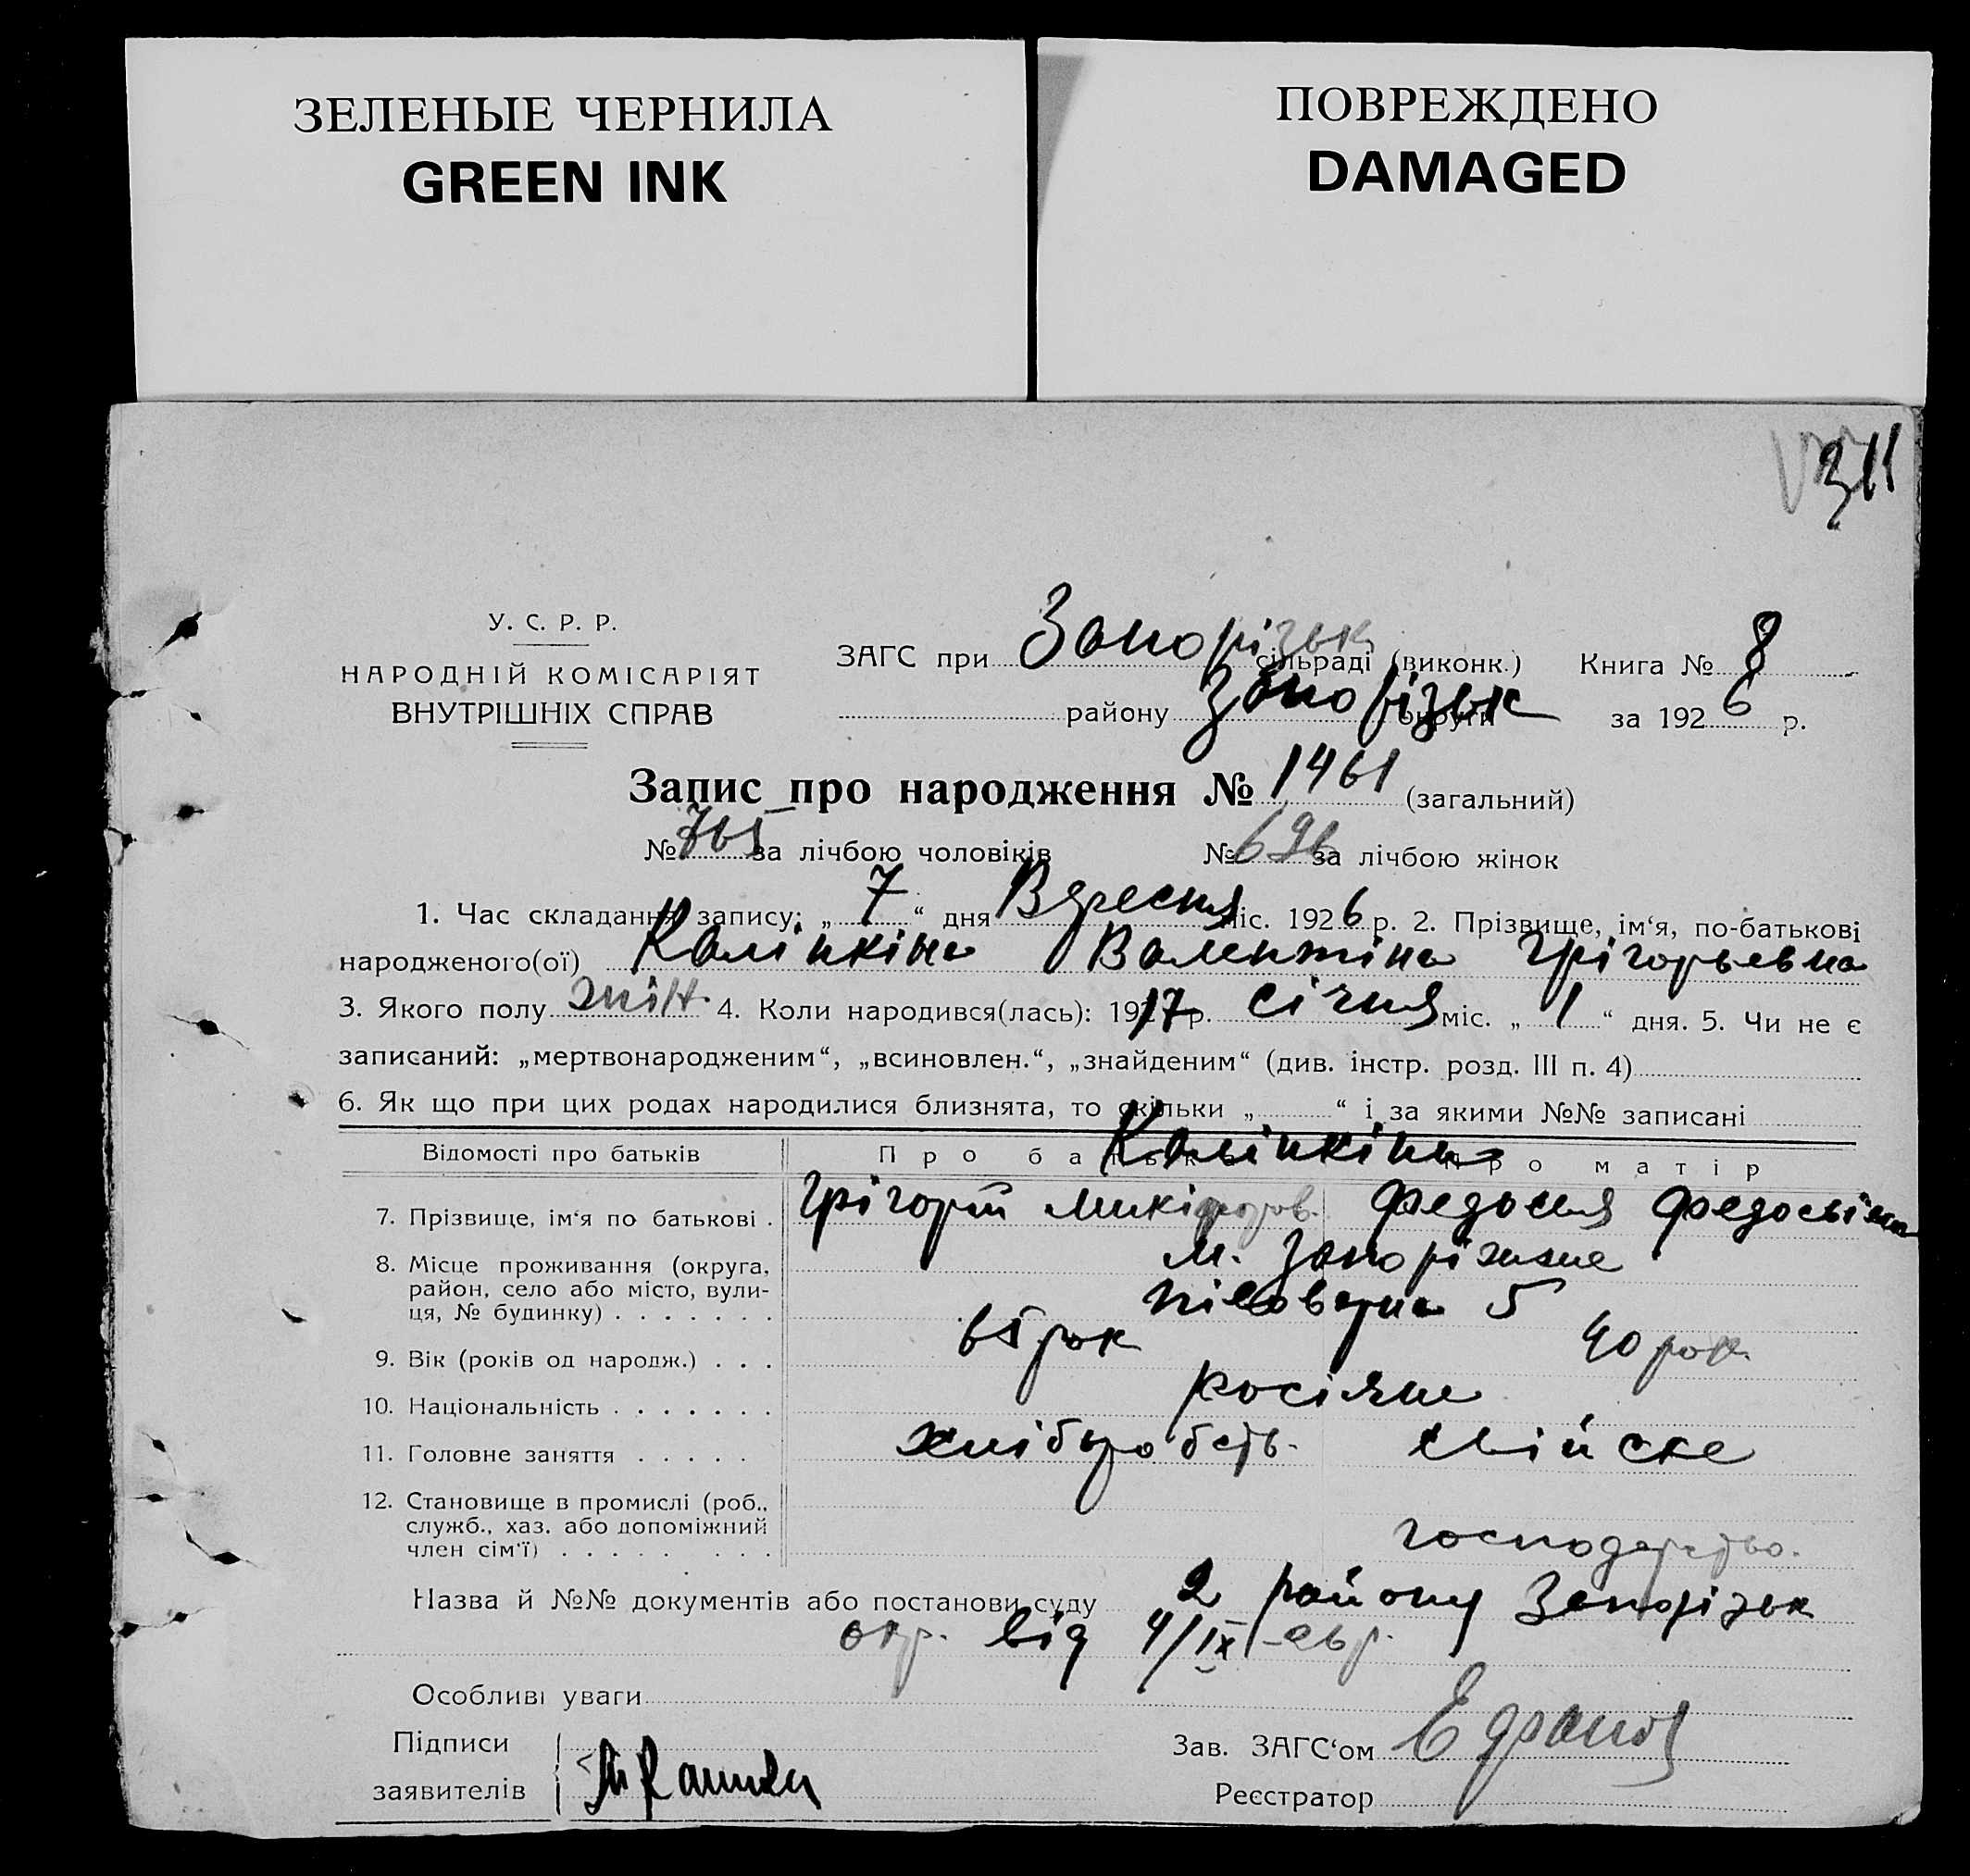 ЗЕЛЕНЫЕ ЧЕРНИЛА
GREEN INK
ПОВРЕЖДЕНО
DAMAGED
311
У. С. Р. Р.
НАРОДНІЙ КОМІСАРІЯТ
ВНУТРІШНІХ СПРАВ
ЗАГС при Запорізьк сільраді (виконк.) Книга № 8
району Запорізьк округи за 1926 р.
Запис про народження № 1461 (загальний)
№ 765 за лічбою чоловіків № 696 за лічбою жінок
1. Час складання запису: „7“ дня Вересня міс. 1926 р. 2. Прізвище, ім‘я, по-батькові
народженого(ої) Калінкіна Валентіна Грігорьевна
3. Якого полу жін. 4. Коли народився(лась): 1917 р. січня міс. „1“ дня. 5. Чи не є
записаний: „мертвонародженим“, „всиновлен.“, „знайденим“ (див. інстр. розд. III п. 4)
6. Як що при цих родах народилися близнята, то скільки „ “ і за якими №№ записані
Відомості про батьків Про батька Про матір
Калінкіни
7. Прізвище, ім‘я по батькові . Грігорій Микіфоров. Федосия Федосьівна
8. Місце проживання (округа, м. Запоріжже
район, село або місто, вули-
ця, № будинку) . . . . . . . 5
9. Вік (років од народж.) . . . 65 рок 40 рок.
10. Національність . . . . . . . росіяне
11. Головне заняття . . . . . хліборобств. хвійске
12. Становище в промислі (роб.,
служб., хаз. або допоміжний
член сім‘ї) . . . . . . . . господарство.
Назва й №№ документів або постанови суду 2 району Запорізьк
окр. від 4/IX
Особливі уваги
Підписи
заявителів
Зав. ЗАГС‘ом
Реєстратор